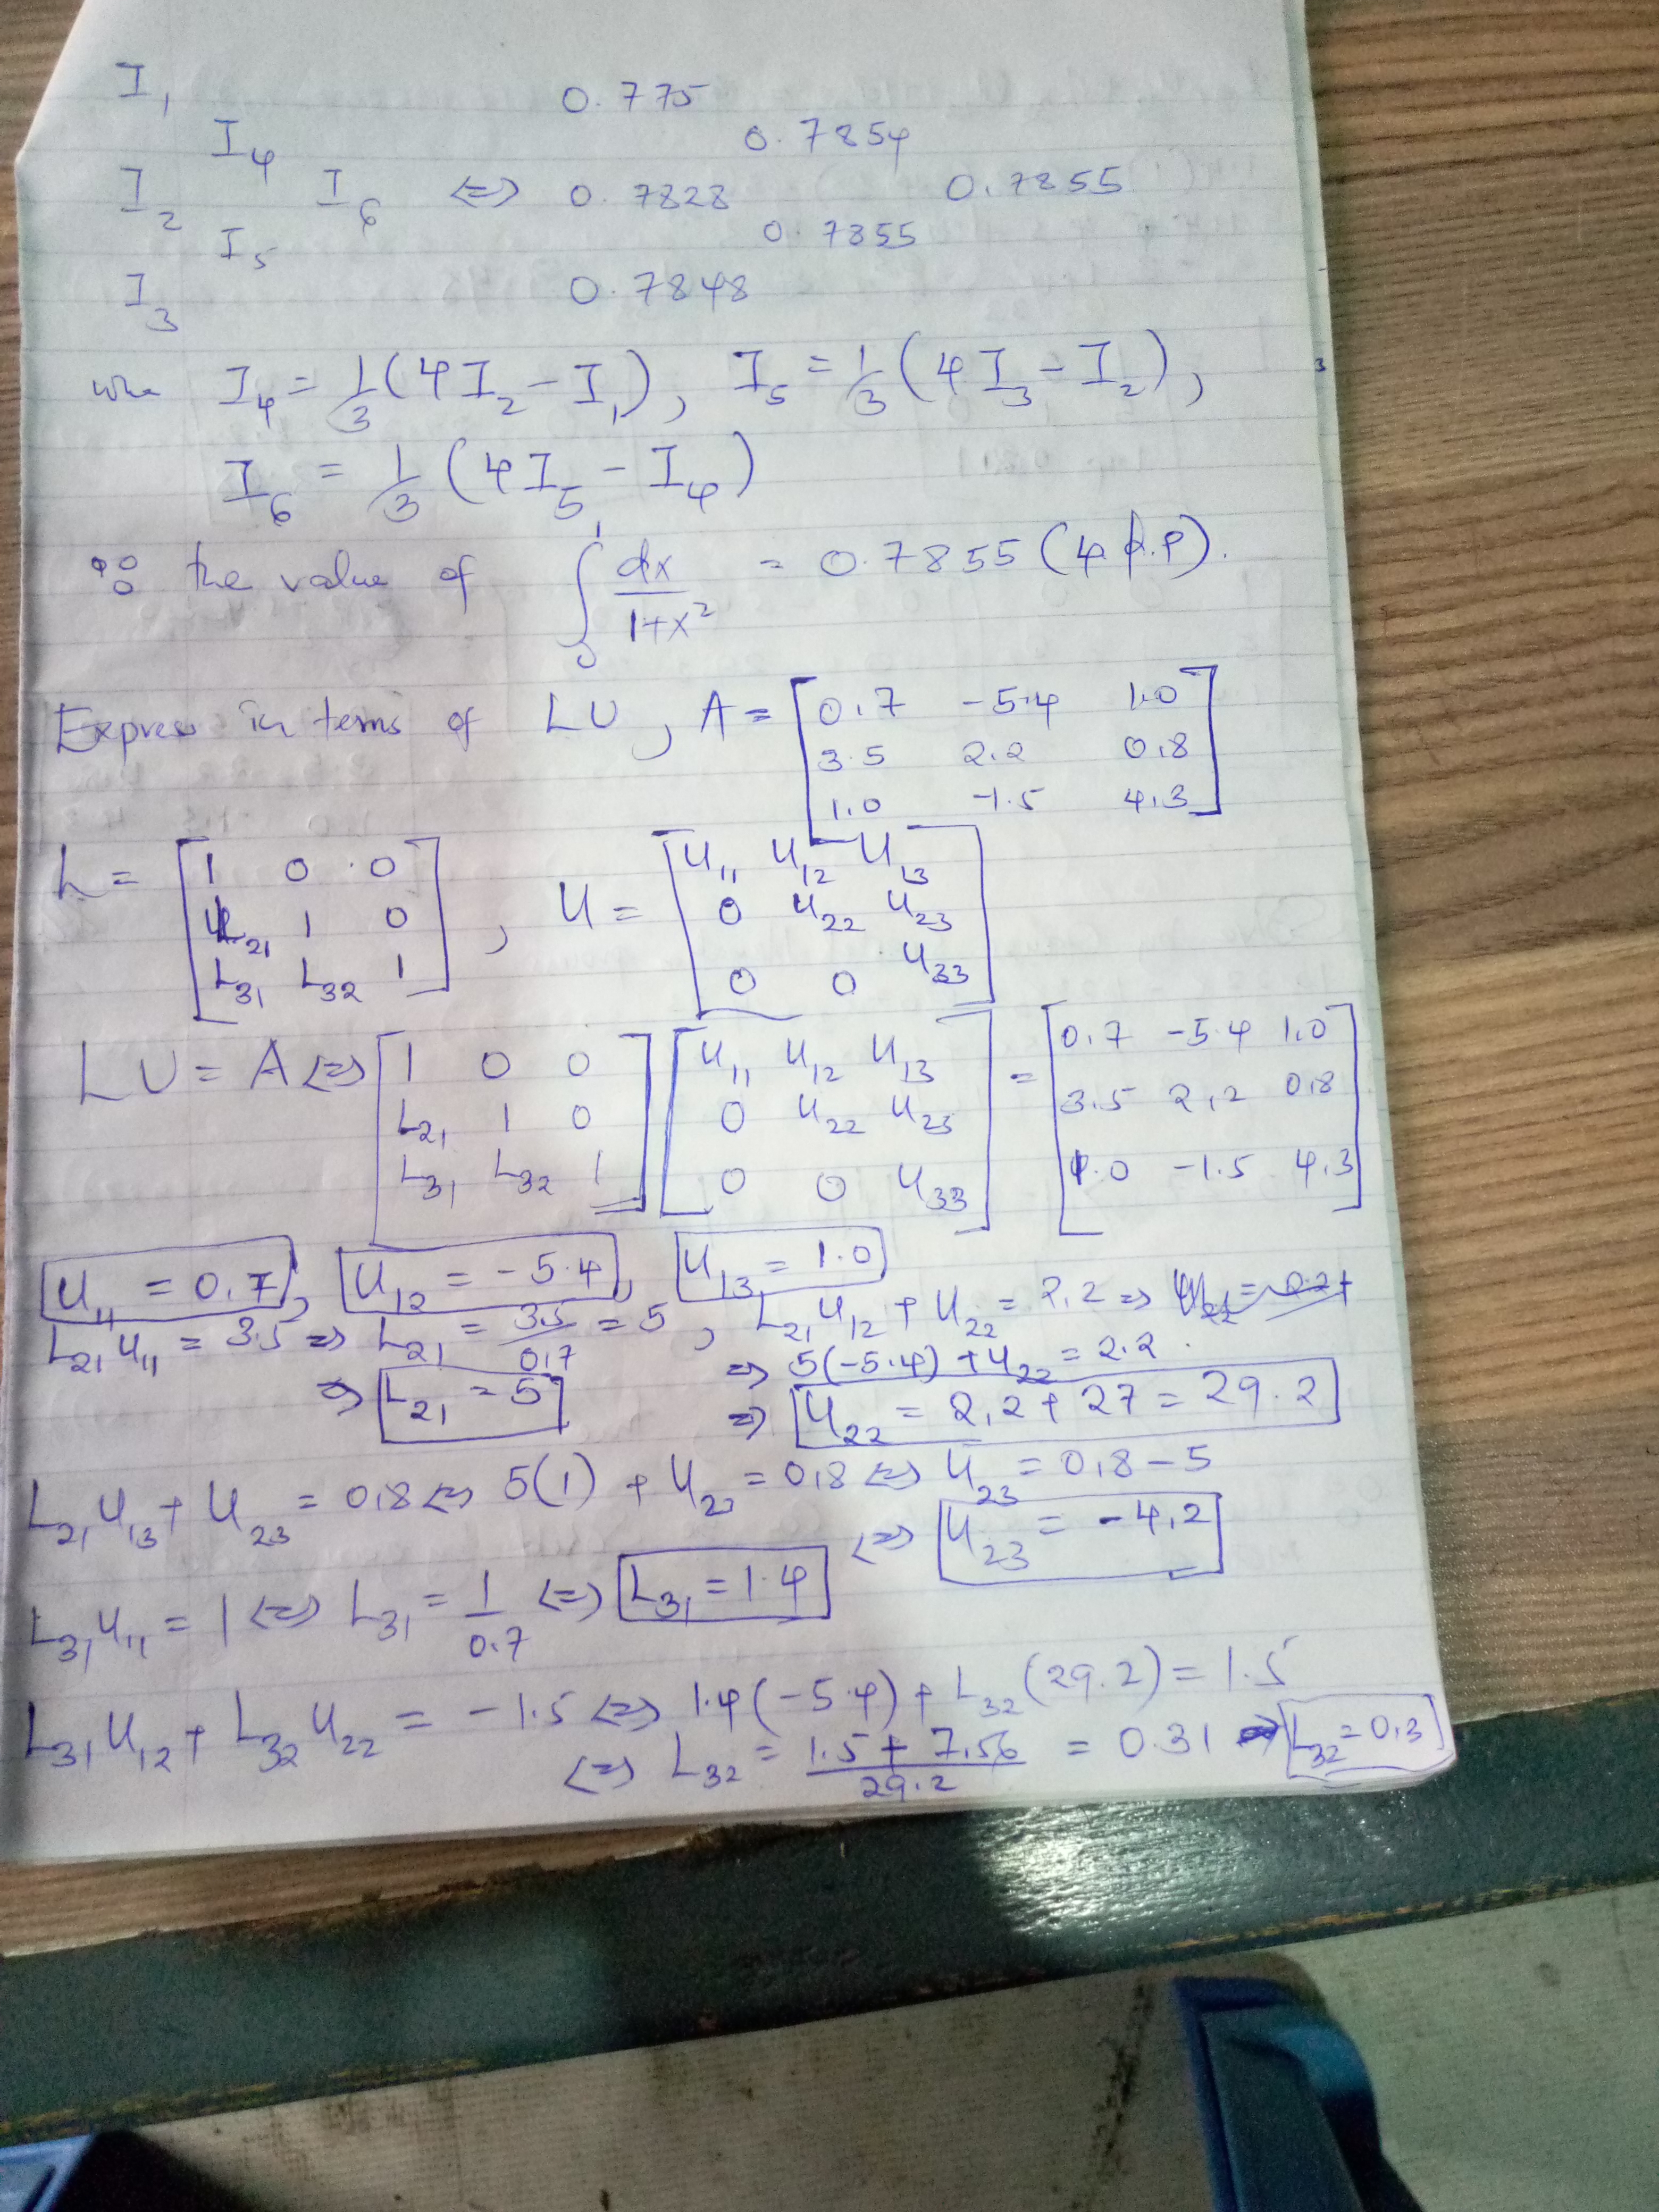 I₁ 0.775
I₄ 0.7854
I₂ I₆ ⇔ 0.7828 0.7855
I₅ 0.7855
I₃ 0.7848
whe I₄ = 1/3 (4I₂ - I₁), I₅ = 1/3 (4I₃ - I₂),
I₆ = 1/3 (4I₅ - I₄)
∴ the value of ∫₀¹ dx/(1+x²) = 0.7855 (4 d.p).
Express in terms of LU, A = [0.7 -5.4 1.0
3.5 2.2 0.8
1.0 -1.5 4.3]
L = [1 0 0
L₂₁ 1 0
L₃₁ L₃₂ 1] , U = [U₁₁ U₁₂ U₁₃
0 U₂₂ U₂₃
0 0 U₃₃]
LU = A ⇔ [1 0 0
L₂₁ 1 0
L₃₁ L₃₂ 1] [U₁₁ U₁₂ U₁₃
0 U₂₂ U₂₃
0 0 U₃₃] = [0.7 -5.4 1.0
3.5 2.2 0.8
1.0 -1.5 4.3]
U₁₁ = 0.7, U₁₂ = -5.4, U₁₃ = 1.0
L₂₁U₁₁ = 3.5 ⇒ L₂₁ = 3.5/0.7 = 5, L₂₁U₁₂ + U₂₂ = 2.2 ⇒
⇒ 5(-5.4) + U₂₂ = 2.2
⇒ L₂₁ = 5 ⇒ U₂₂ = 2.2 + 27 = 29.2
L₂₁U₁₃ + U₂₃ = 0.8 ⇔ 5(1) + U₂₃ = 0.8 ⇔ U₂₃ = 0.8 - 5
⇔ U₂₃ = -4.2
L₃₁U₁₁ = 1 ⇔ L₃₁ = 1/0.7 ⇔ L₃₁ = 1.4
L₃₁U₁₂ + L₃₂U₂₂ = -1.5 ⇔ 1.4(-5.4) + L₃₂(29.2) = 1.5
⇔ L₃₂ = (1.5 + 7.56)/29.2 = 0.31 ⇒ L₃₂ = 0.3